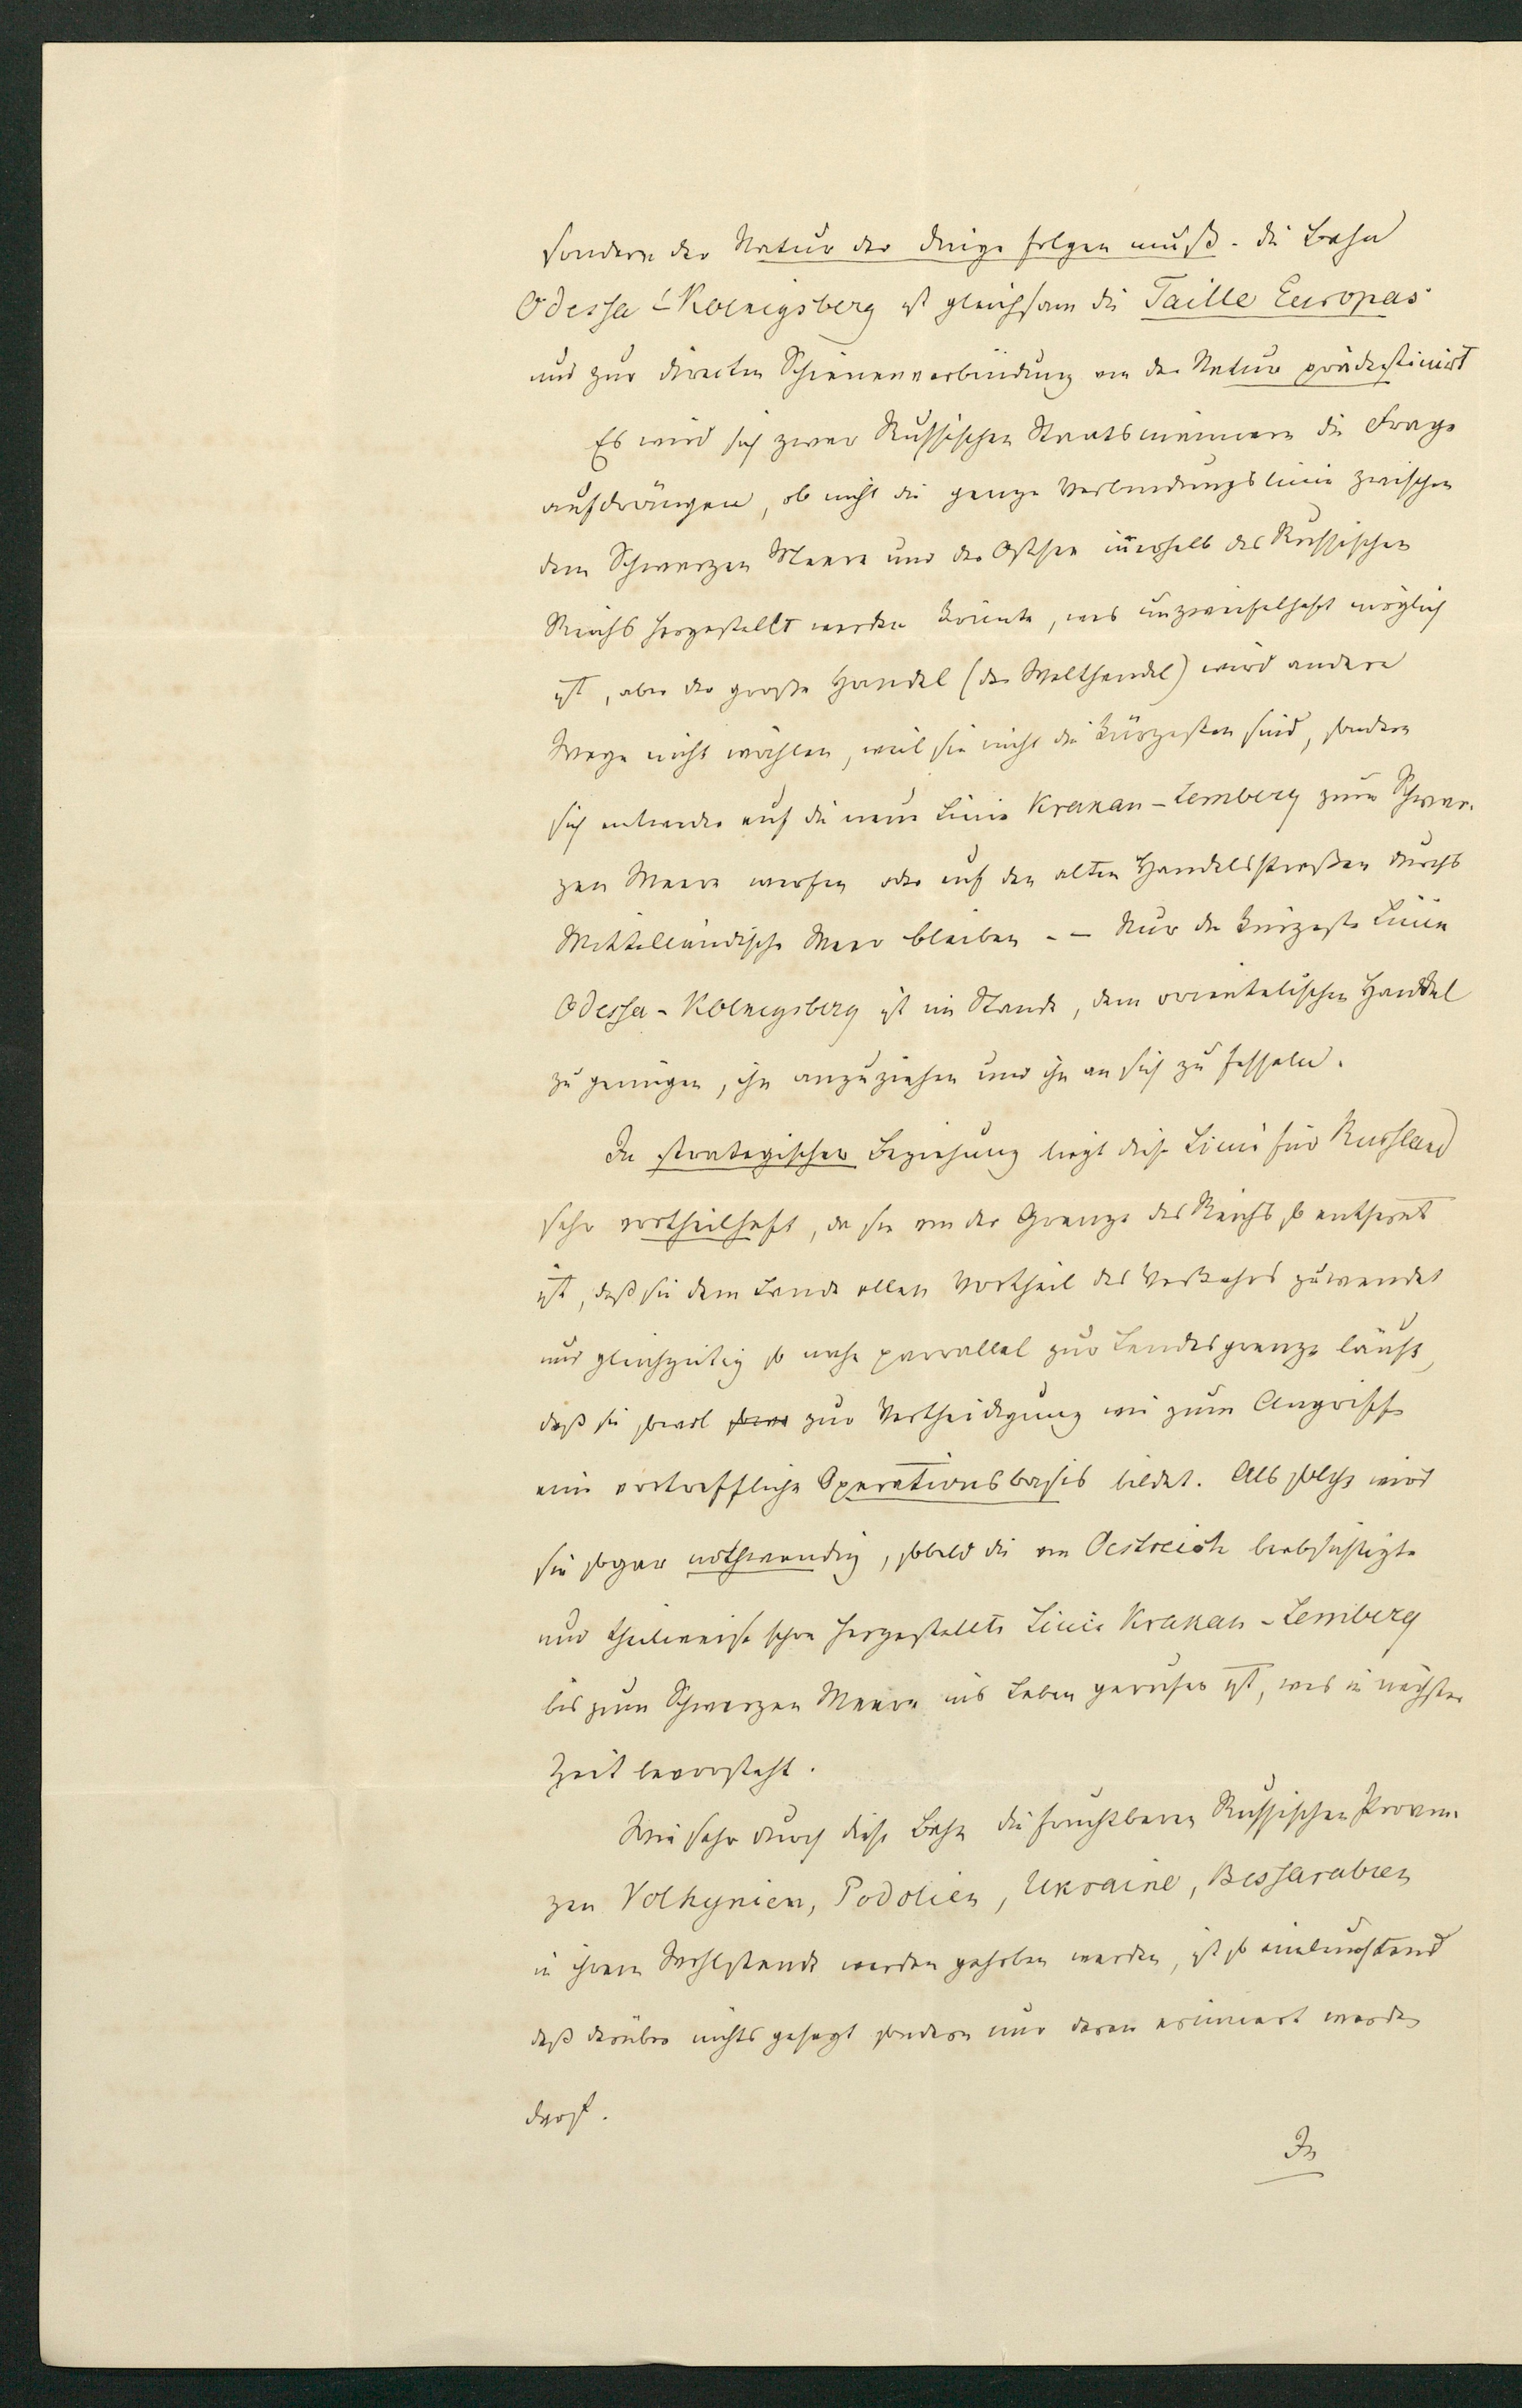 sondern der Natur der Dinge folgen muß. Die Bahn
Odessa-Koenigsberg ist gleichsam die Taille Europas
und zur directen Schienenverbindung von der Natur prädestinirt
Es wird sich zwar Russischen Staatsmännern die Frage
aufdrängen, ob nicht die ganze Verbindungslinie zwischen
dem Schwarzen Meere und der Ostsee innerhalb des Russischen
Reichs hergestellt werden könnte, was unzweifelhaft möglich
ist, aber der große Handel (der Welthandel) wird andere
Wege nicht wählen, weil sie nicht die kürzesten sind, sondern
sich entweder auf die neue Linie Krakau-Lemberg zum Schwar-
zen Meere werfen oder auf den alten Handelsstraßen durchs
Mittelländische Meer bleiben. – Nur die kürzeste Linie
Odessa-Koenigsberg ist im Stande, dem orientalischen Handel
zu genügen, ihn anzuziehen und ihn an sich zu fesseln.
In strategischer Beziehung liegt diese Linie für Russland
sehr vortheilhaft, da sie von der Grenze des Reichs so entfernt
ist, daß sie dem Lande allen Vortheil des Verkehrs zuwendet
und gleichzeitig so nahe parrallel zur Landesgrenze läuft,
daß sie sowol zur Vertheidigung wie zum Angriffe
eine vortreffliche Operationsbasis bildet. Als solche wird
sie sogar nothwendig, sobald die von Oestreich beabsichtigte
und theilweise schon hergestellte Linie Krakau-Lemberg
bis zum Schwarzen Meere ins Leben gerufen ist, was in nächster
Zeit bevorsteht.
Wie sehr durch diese Bahn die fruchtbaren Russischen Provin-
zen Volhynien, Podolien, Ukraine, Bessarabien
in ihrem Wohlstande werden gehoben werden, ist so einleuchtend
daß darüber nichts gesagt sondern nur daran erinnert werden
darf.
In